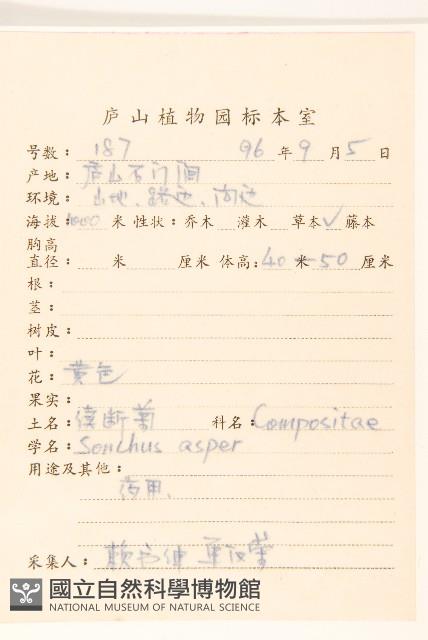 庐山植物园标本室
号数: 187 96年9月5日
产地: 庐山石门涧
环境: 山地、路边、沟边
海拔: 1000米 性状: 乔木 灌木 草本✓ 藤本
胸高
直径: 米 厘米 体高: 40米—50厘米
根:
茎:
树皮:
叶:
花: 黄色
果实:
土名: 续断菊 科名: Compositae
学名: Sonchus asper
用途及其他:
药用、
采集人: 赖书绅
國立自然科學博物館
NATIONAL MUSEUM OF NATURAL SCIENCE